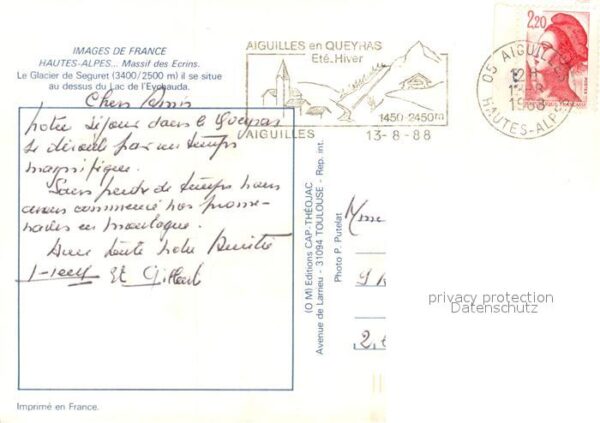 IMAGES DE FRANCE
HAUTES-ALPES... Massif des Ecrins.
Le Glacier de Seguret (3400/2500 m) il se situe
au dessus du Lac de l'Eychauda.
Chers Amis
Notre séjour dans le Queyras
se déroule par un temps
magnifique.
Sans perdre de temps nous
avons commencé nos prome-
nades en montagne.
Avec toute notre Amitié
et Gilbert
Imprimé en France.
(O M) Editions CAP-THEOJAC
Avenue de Larrieu - 31094 TOULOUSE - Rep. int.
Photo P. Putelat
AIGUILLES en QUEYRAS
Eté.Hiver
1450-2450m
AIGUILLES 13-8-88
05 AIGUILLES
13-8
1988
HAUTES-ALPES
2,20
Mme
privacy protection
Datenschutz
2,